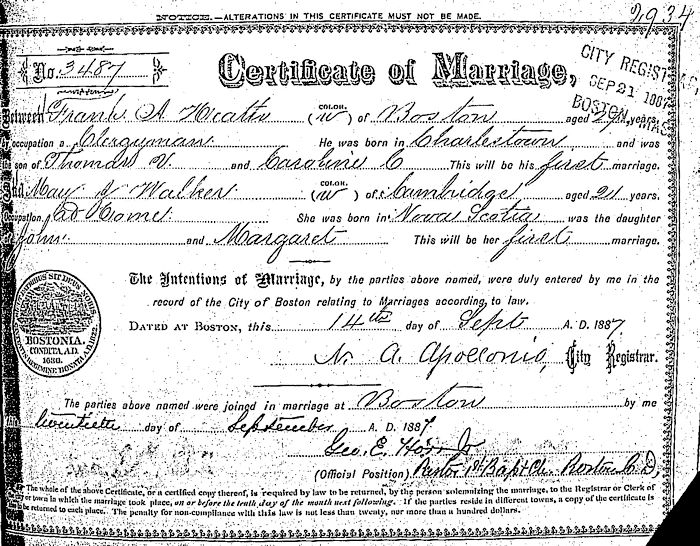 NOTICE.—ALTERATIONS IN THIS CERTIFICATE MUST NOT BE MADE.
2934
No. 3487
Certificate of Marriage,
CITY REGIST
SEP 21 188
BOSTON, MAS
Between Frank A Heath (COLOR. w) of Boston aged 27 years,
by occupation a Clergyman. He was born in Charlestown and was
the son of Thomas V. and Caroline C This will be his first marriage.
And May J Walker (COLOR. w) of Cambridge aged 21 years.
Occupation, At Home. She was born in Nova Scotia was the daughter
of John. and Margaret This will be her first marriage.
The Intentions of Marriage, by the parties above named, were duly entered by me in the
record of the City of Boston relating to Marriages according to law.
DATED AT BOSTON, this 14th day of Sept A. D. 1887
N. A. Apollonio, City Registrar.
BOSTONIA.
CONDITA, A.D.
1630.
The parties above named were joined in marriage at Boston by me
this twentieth day of September A. D. 1887
Geo. E. Horr Jr
(Official Position) Pastor 1st Bapt Ch. Boston
The whole of the above Certificate, or a certified copy thereof, is required by law to be returned, by the person solemnizing the marriage, to the Registrar or Clerk of
city or town in which the marriage took place, on or before the tenth day of the month next following. If the parties reside in different towns, a copy of the certificate is
to be returned to each place. The penalty for non-compliance with this law is not less than twenty, nor more than a hundred dollars.